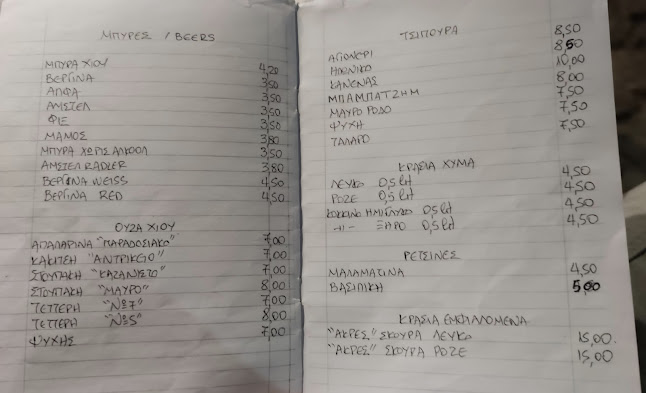 ΜΠΥΡΕΣ / BEERS
ΜΠΥΡΑ ΧΙΟΥ 4,20
ΒΕΡΓΙΝΑ 3,50
ΑΛΦΑ 3,50
ΑΜΣΤΕΛ 3,50
ΦΙΞ 3,50
ΜΑΜΟΣ 3,80
ΜΠΥΡΑ ΧΩΡΙΣ ΑΛΚΟΟΛ 3,50
ΑΜΣΤΕΛ RADLER 3,80
ΒΕΡΓΙΝΑ WEISS 4,50
ΒΕΡΓΙΝΑ RED 4,50
ΟΥΖΑ ΧΙΟΥ
ΑΠΑΛΑΡΙΝΑ "ΠΑΡΑΔΟΣΙΑΚΟ" 7,00
ΚΑΚΙΤΣΗ "ΑΝΤΡΙΚΕΙΟ" 7,00
ΣΤΟΥΠΑΚΗ "ΚΑΖΑΝΙΣΤΟ" 7,00
ΣΤΟΥΠΑΚΗ "ΜΑΥΡΟ" 8,00
ΤΕΤΤΕΡΗ "Νο7" 7,00
ΤΕΤΤΕΡΗ "Νο5" 8,00
ΨΥΧΗΣ 7,00
ΤΣΙΠΟΥΡΑ
ΑΓΙΟΝΕΡΙ 8,50
ΗΔΩΝΙΚΟ 8,50
ΚΑΝΕΝΑΣ 10,00
ΜΠΑΜΠΑΤΖΗΜ 8,00
ΜΑΥΡΟ ΡΟΔΟ 7,50
ΨΥΧΗ 7,50
ΤΑΛΑΡΟ 7,50
ΚΡΑΣΙΑ ΧΥΜΑ
ΛΕΥΚΟ 0,5 lit 4,50
ΡΟΖΕ 0,5 lit 4,50
ΚΟΚΚΙΝΟ ΗΜΙΓΛΥΚΟ 0,5 lit 4,50
-//- ΞΗΡΟ 0,5 lit 4,50
ΡΕΤΣΙΝΕΣ
ΜΑΛΑΜΑΤΙΝΑ 4,50
ΒΑΣΙΛΙΚΗ 5,00
ΚΡΑΣΙΑ ΕΜΦΙΑΛΩΜΕΝΑ
"ΑΚΡΕΣ" ΣΚΟΥΡΑ ΛΕΥΚΟ 15,00
"ΑΚΡΕΣ" ΣΚΟΥΡΑ ΡΟΖΕ 15,00